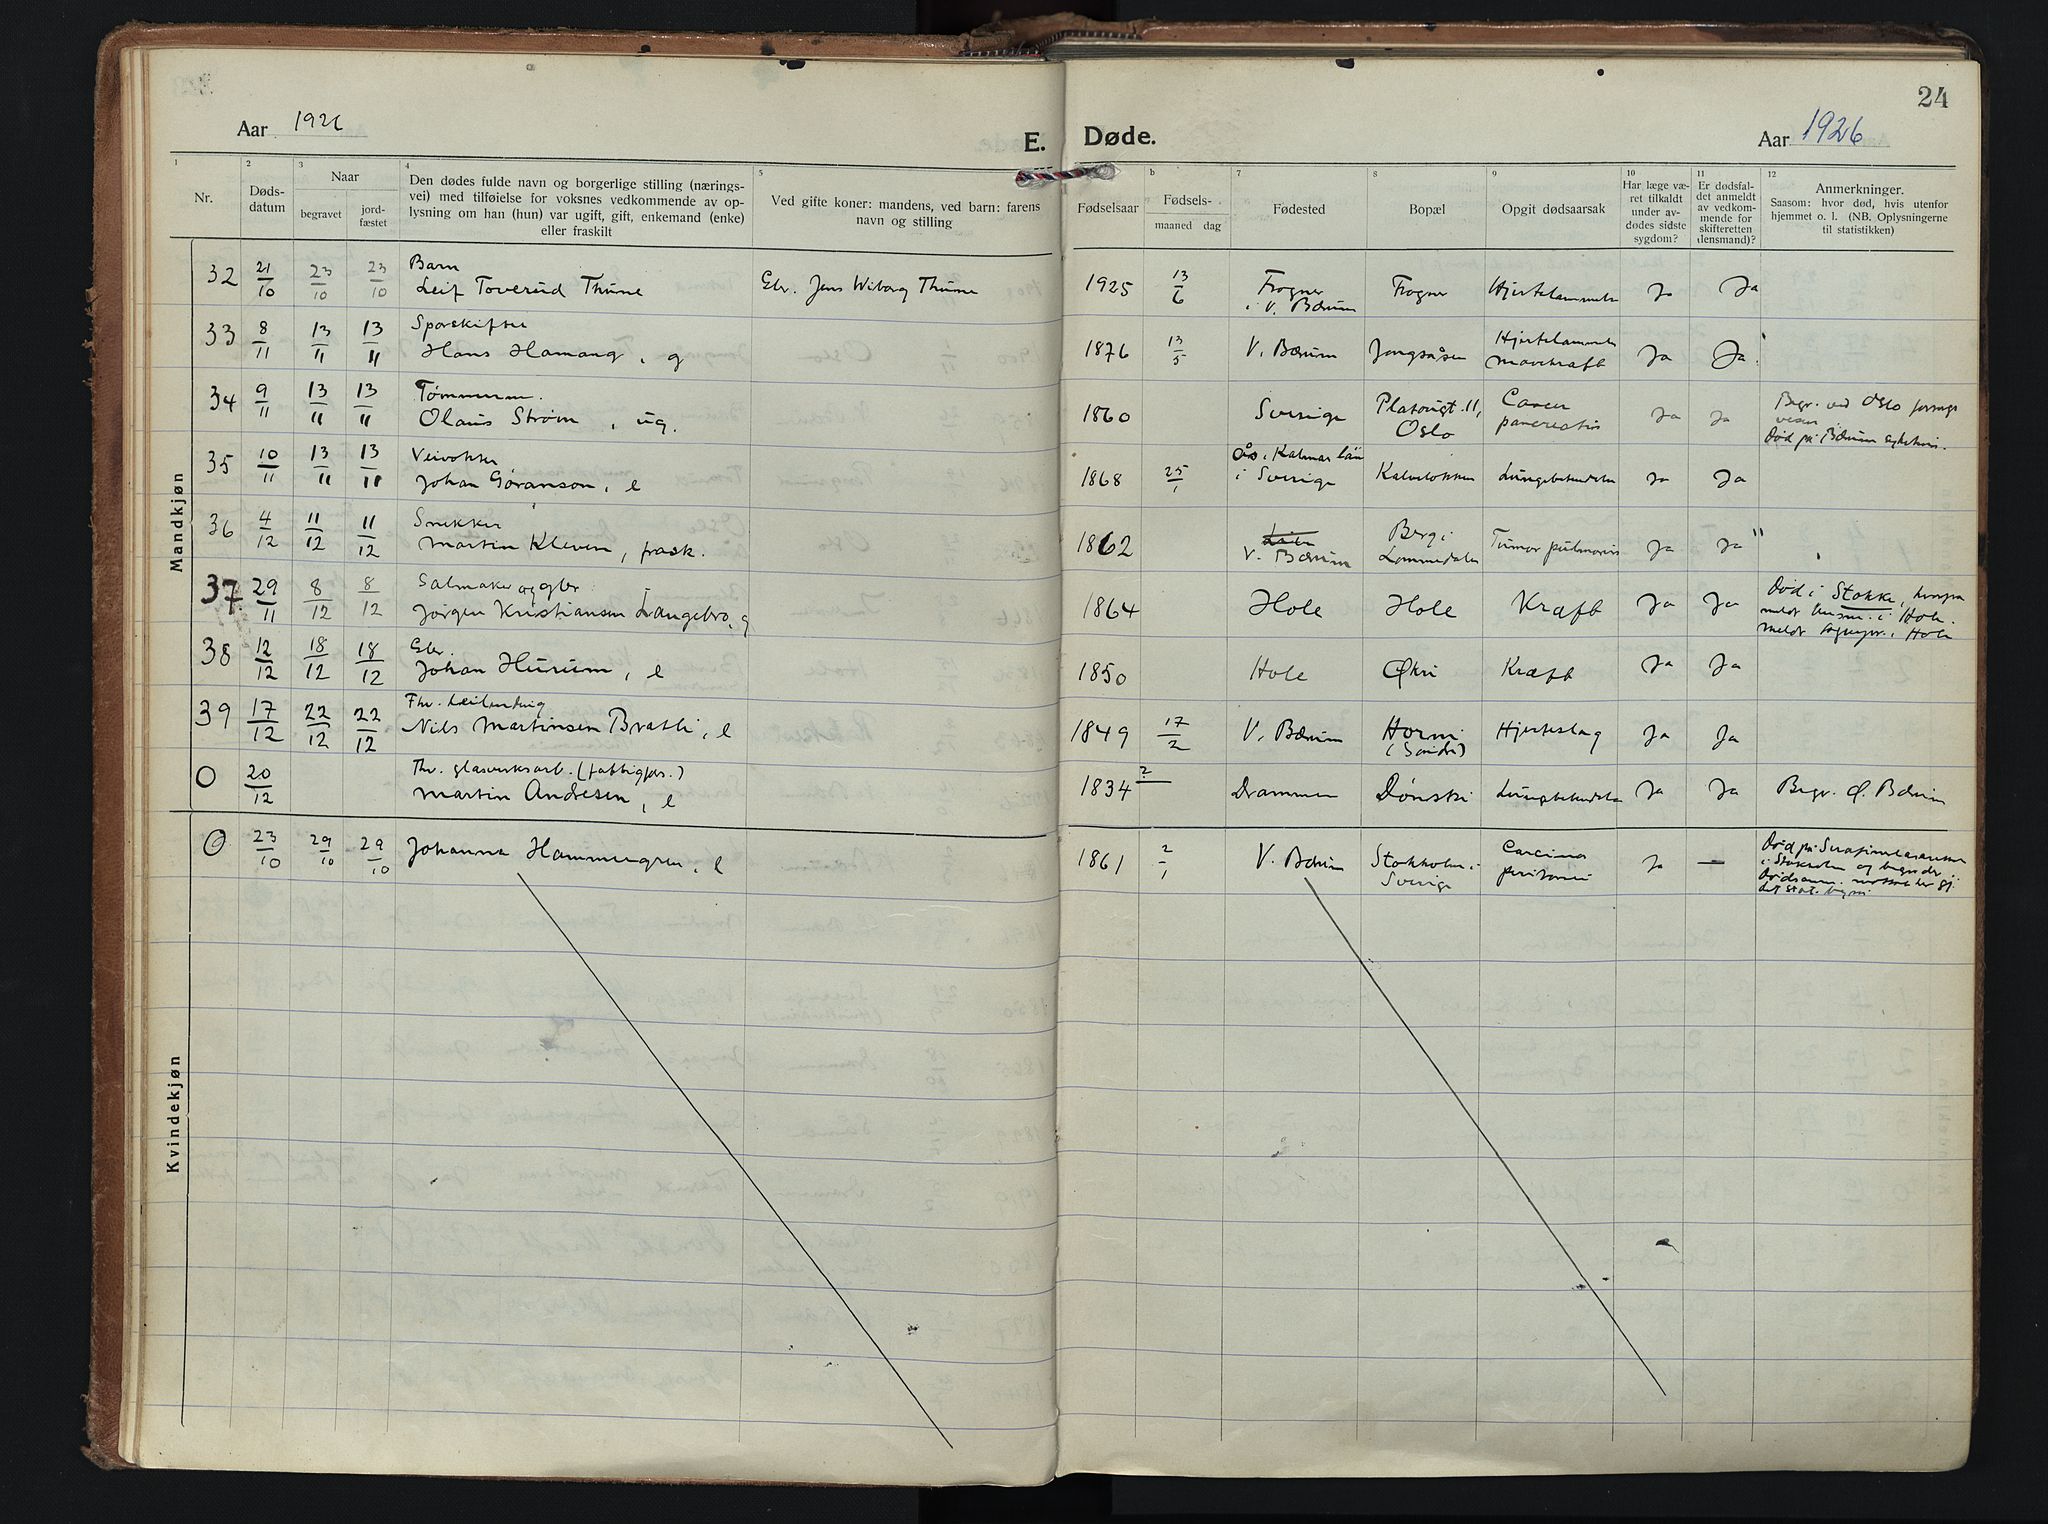 24
Aar 1926
E.
Døde.
Aar 1926
1
2
3
4
5
b
7
8
9
10
11
12
Nr.
Døds-
datum
Naar
begravet
jord-
fæstet
Den dødes fulde navn og borgerlige stilling (nærings-
vei) med tilføielse for voksnes vedkommende av op-
lysning om han (hun) var ugift, gift, enkemand (enke)
eller fraskilt
Ved gifte koner: mandens, ved barn: farens
navn og stilling
Fødselsaar
Fødsels-
maaned dag
Fødested
Bopæl
Opgit dødsaarsak
Har læge væ-
ret tilkaldt
under av-
dødes sidste
sygdom?
Er dødsfal-
det anmeldt
av vedkom-
mende for
skifteretten
(lensmand)?
Anmerkninger.
Saasom: hvor død, hvis utenfor
hjemmet o. l. (NB. Oplysningerne
til statistikken)
Mandkjøn
32 21/10 23/10 23/10 Barn
Leif Toverud Thune Gbr. Jens Wiborg Thune 1925 13/6 Frogner
i V. Bærum Frogner Hjertelammelse Ja Ja
33 8/11 13/11 13/11 Sporskifter
Hans Hamang, g 1876 13/5 V. Bærum Jongsåsen Hjertelammelse
Mavekræft Ja Ja
34 9/11 13/11 13/11 Tømmerm.
Olaus Strøm, ug. 1860 Sverige Platousgt. 11,
Oslo Cancer
pancreatis Ja Ja Begr. ved Oslo forsorgs
vesen.
Død på Bærum sykehus.
35 10/11 13/11 13/11 Veivokter
Johan Gøranson, e 1868 25/1 Ås i Kalmar län
i Sverige Kalveløkken Lungebetændelse Ja Ja
36 4/12 11/12 11/12 Snekker
Martin Kleven, frask. 1862
V. Bærum Berg i
Lommedalen Tumor pulmonis Ja Ja "
37 29/11 8/12 8/12 Salmaker og gbr
Jørgen Kristiansen Langebro, g 1864 Hole Hole Kræft Ja Ja Død i Stokke,
meldt lensm. i Hole.
meldt sognepr. i Hole
38 12/12 18/12 18/12 Gbr.
Johan Hurum, e 1850 Hole Økri Kræft Ja Ja
39 17/12 22/12 22/12 Fhv.
Nils Martinsen Bratli, e 1849 17/2 V. Bærum Horni
(Søndre) Hjerteslag Ja Ja
0 20/12 Fhv. glasverksarb. (fattigfors.)
Martin Andresen, e 1834 ? Drammen Dønski Lungebetændelse Ja Ja Begr. Ø. Bærum
Kvindekjøn
0 23/10 29/10 29/10 Johanna Hammergren, e 1861 2/1 V. Bærum Stokholm i
Sverige Carcinoma
peritonei Ja — Død på Serafimerlasarettet
i Stokholm og begr. der.
Dødsanm. mottat her gj.
det stat. byrå.